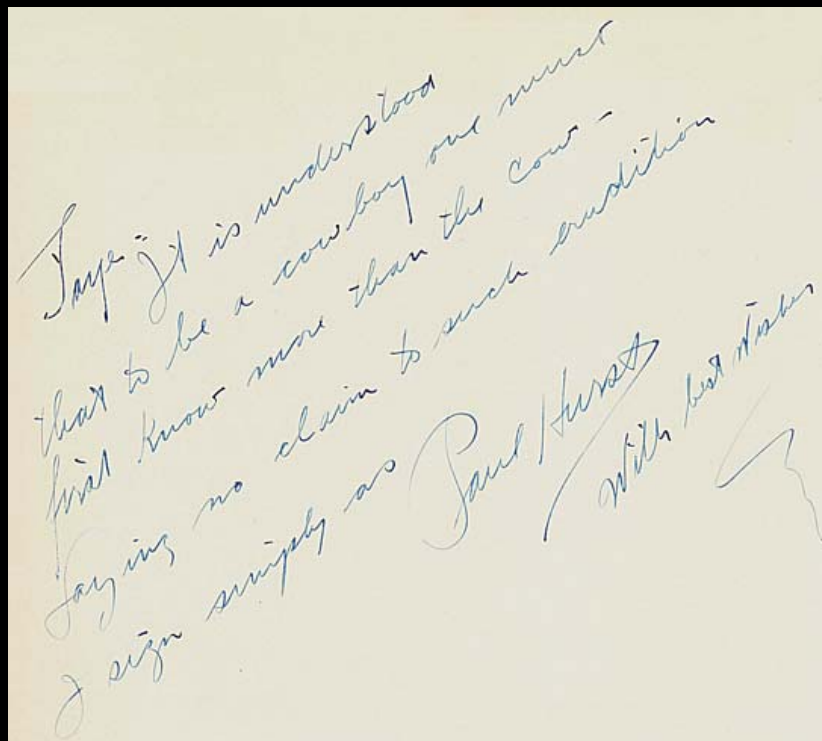 Faye - It is understood
that to be a cowboy one must
first know more than the cow -
Laying no claim to such erudition
I sign simply as Paul Hurst
With best wishes